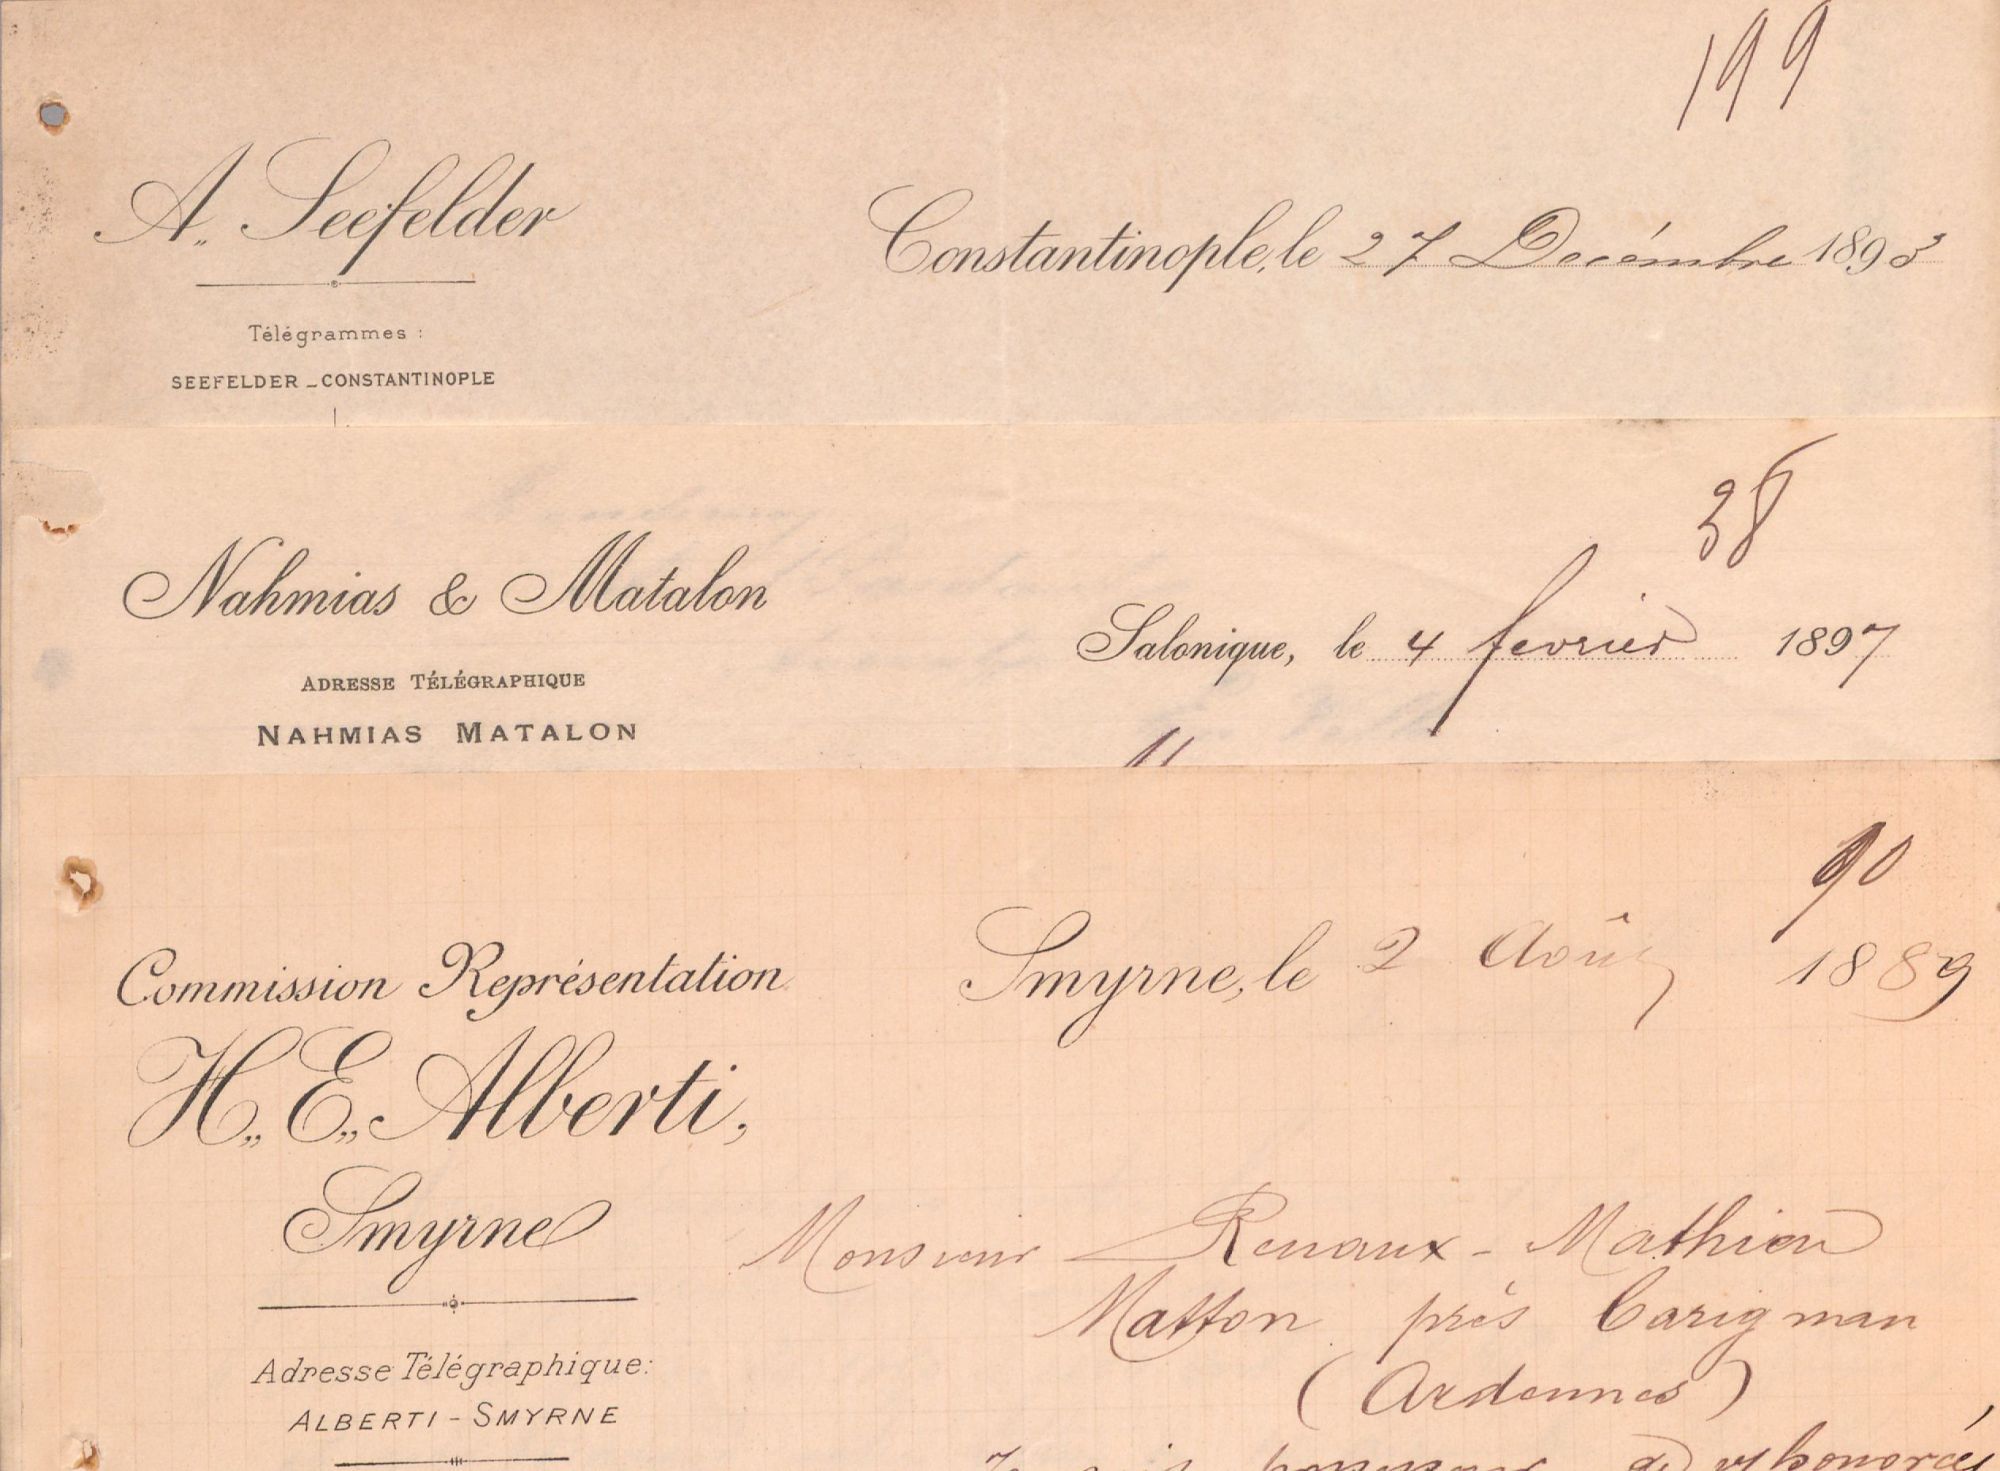 199
A. Seefelder
Constantinople, le 27 Decémbre 1893
Télégrammes :
SEEFELDER _ CONSTANTINOPLE
38
Nahmias & Matalon
Salonique, le 4 fevrier 1897
ADRESSE TÉLÉGRAPHIQUE
NAHMIAS MATALON
90
Commission Représentation
Smyrne, le 2 Août 1889
H. E. Alberti,
Smyrne
Monsieur Renaux - Mathieu
Matton près Carignan
(Ardennes)
Adresse Télégraphique:
ALBERTI - SMYRNE